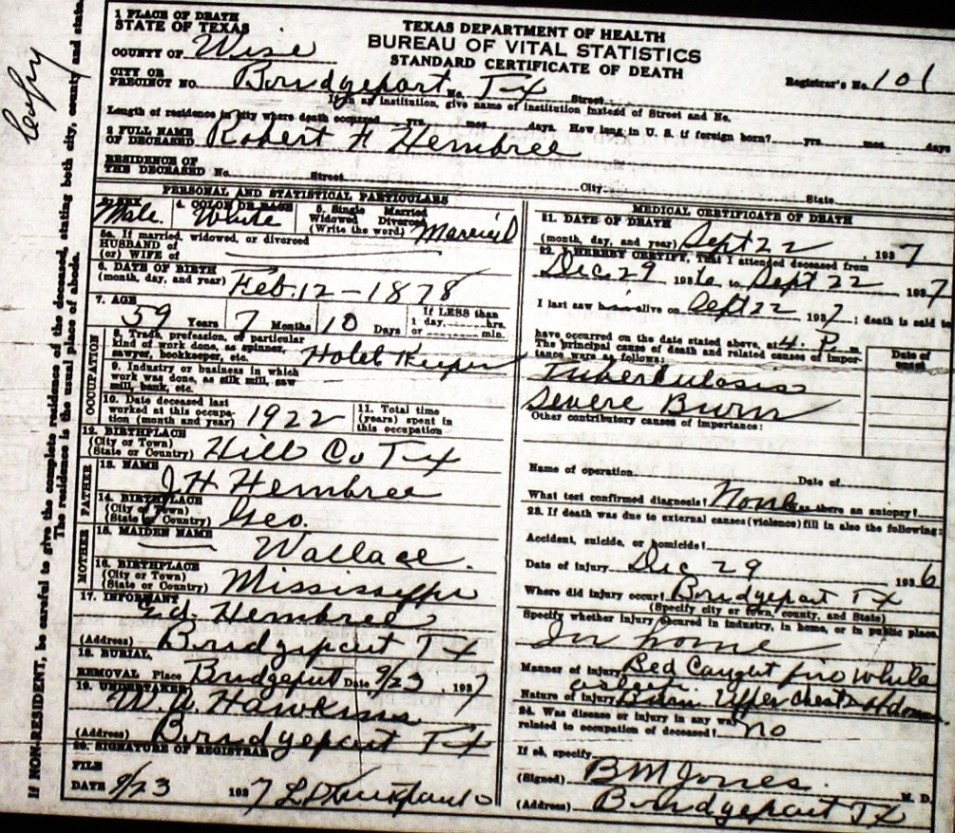 1 PLACE OF DEATH
STATE OF TEXAS
COUNTY OF Wise
CITY OR PRECINCT NO. Bridgeport Tx No. Street
If in an institution, give name of institution instead of Street and No.
Length of residence in city where death occurred yrs. mos. days. How long in U. S. if foreign born? yrs. mos. days
TEXAS DEPARTMENT OF HEALTH
BUREAU OF VITAL STATISTICS
STANDARD CERTIFICATE OF DEATH
Registrar's No. 101
2 FULL NAME OF DECEASED Robert F Hembree
RESIDENCE OF THE DECEASED No. Street City State
If NON-RESIDENT, be careful to give the complete residence of the deceased, stating both city, county and state.
The residence is the usual place of abode.
PERSONAL AND STATISTICAL PARTICULARS
Male 4. COLOR OR RACE White 5. Single Married Widowed Divorced (Write the word) Married
5a. If married, widowed, or divorced
HUSBAND of
(or) WIFE of
6. DATE OF BIRTH
(month, day, and year) Feb. 12 - 1878
7. AGE 59 Years 7 Months 10 Days If LESS than 1 day, hrs. or min.
OCCUPATION
8. Trade, profession, or particular kind of work done, as spinner, sawyer, bookkeeper, etc. Hotel Keeper
9. Industry or business in which work was done, as silk mill, saw mill, bank, etc.
10. Date deceased last worked at this occupation (month and year) 1922
11. Total time (years) spent in this occupation
12. BIRTHPLACE
(City or Town)
(State or Country) Hill Co Tx
FATHER
13. NAME J H Hembree
14. BIRTHPLACE
(City or Town)
(State or Country) Geo.
MOTHER
15. MAIDEN NAME Wallace.
16. BIRTHPLACE
(City or Town)
(State or Country) Mississippi
17. INFORMANT Ed Hembree
(Address) Bridgeport Tx
18. BURIAL, REMOVAL Place Bridgeport Date 9/23, 1937
19. UNDERTAKER W. A. Hawkins
(Address) Bridgeport Tx
20. SIGNATURE OF REGISTRAR
FILE DATE 9/23 1937
MEDICAL CERTIFICATE OF DEATH
21. DATE OF DEATH
(month, day, and year) Sept 22, 1937
22. I HEREBY CERTIFY, That I attended deceased from
Dec 29 1936, to Sept 22 1937
I last saw him alive on Sept 22 1937; death is said to
have occurred on the date stated above, at 4. P.
The principal cause of death and related causes of importance were as follows:
Date of onset
Tuberculosis
Severe Burn
Other contributory causes of importance:
Name of operation Date of
What test confirmed diagnosis? None Was there an autopsy?
23. If death was due to external causes (violence) fill in also the following:
Accident, suicide, or homicide?
Date of injury Dec 29 1936
Where did injury occur? Bridgeport Tx
(Specify city or town, county, and State)
Specify whether injury occured in industry, in home, or in public place.
In home
Manner of injury Bed Caught fire while asleep.
Nature of injury Burn Upper chest &
24. Was disease or injury in any way related to occupation of deceased? No
If so, specify
(Signed) B M Jones. M. D.
(Address) Bridgeport Tx